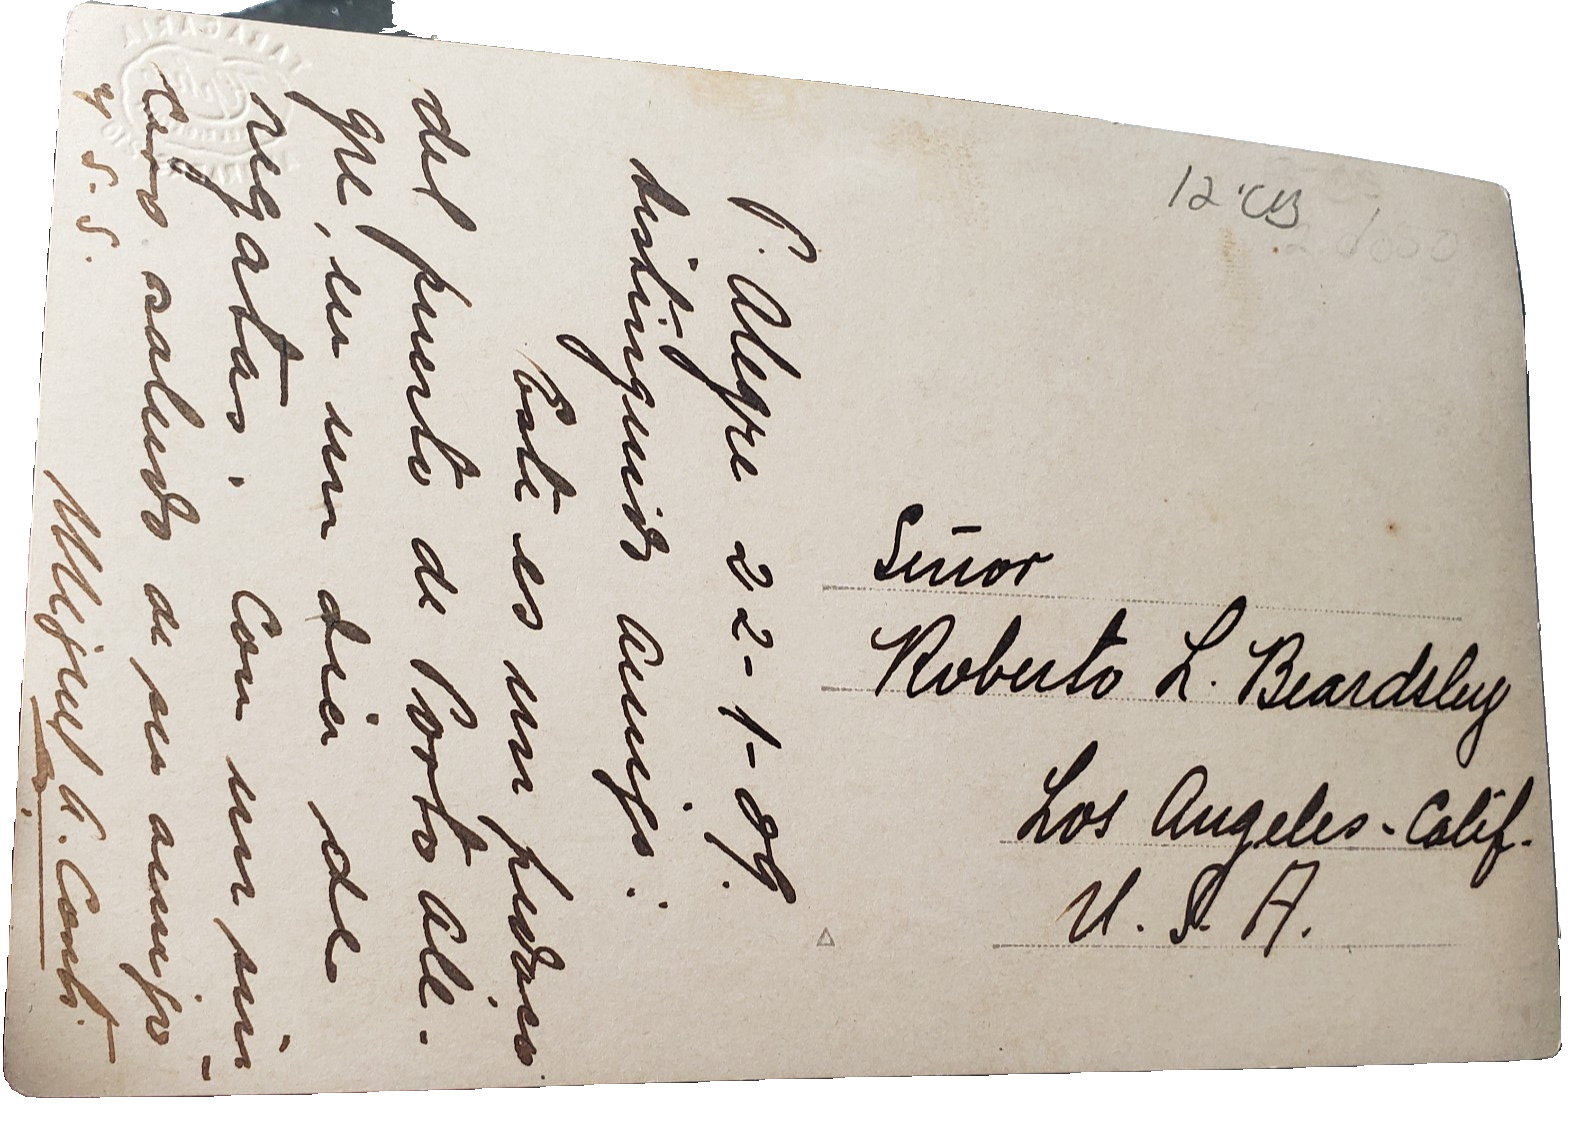 P. Alegre 22-1-09.
Distinguido amigo:
Este es un pedazo
del puerto de Porto Ale-
gre, en un dia de
regatas. Con un sin-
cero saludo de su amigo
y S. S.
Miguel A. Conti
Señor
Roberto L. Beardsley
Los Angeles - Calif.
U. S. A.
12